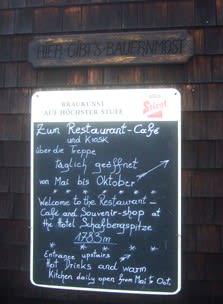 HIER GIBT'S BAUERNMOST
BRAUKUNST
AUF HÖCHSTER STUFE
Stiegl
Zum Restaurant-Café
und Kiosk
über die Treppe
Täglich geöffnet
von Mai bis Oktober
* * * * * * *
Welcome to the Restaurant-
Café and Souvenir-shop at
the Hotel Schafbergspitze
1783m
* * * * * * *
Entrance upstairs
Hot Drinks and warm
Kitchen daily open from Mai to Oct.